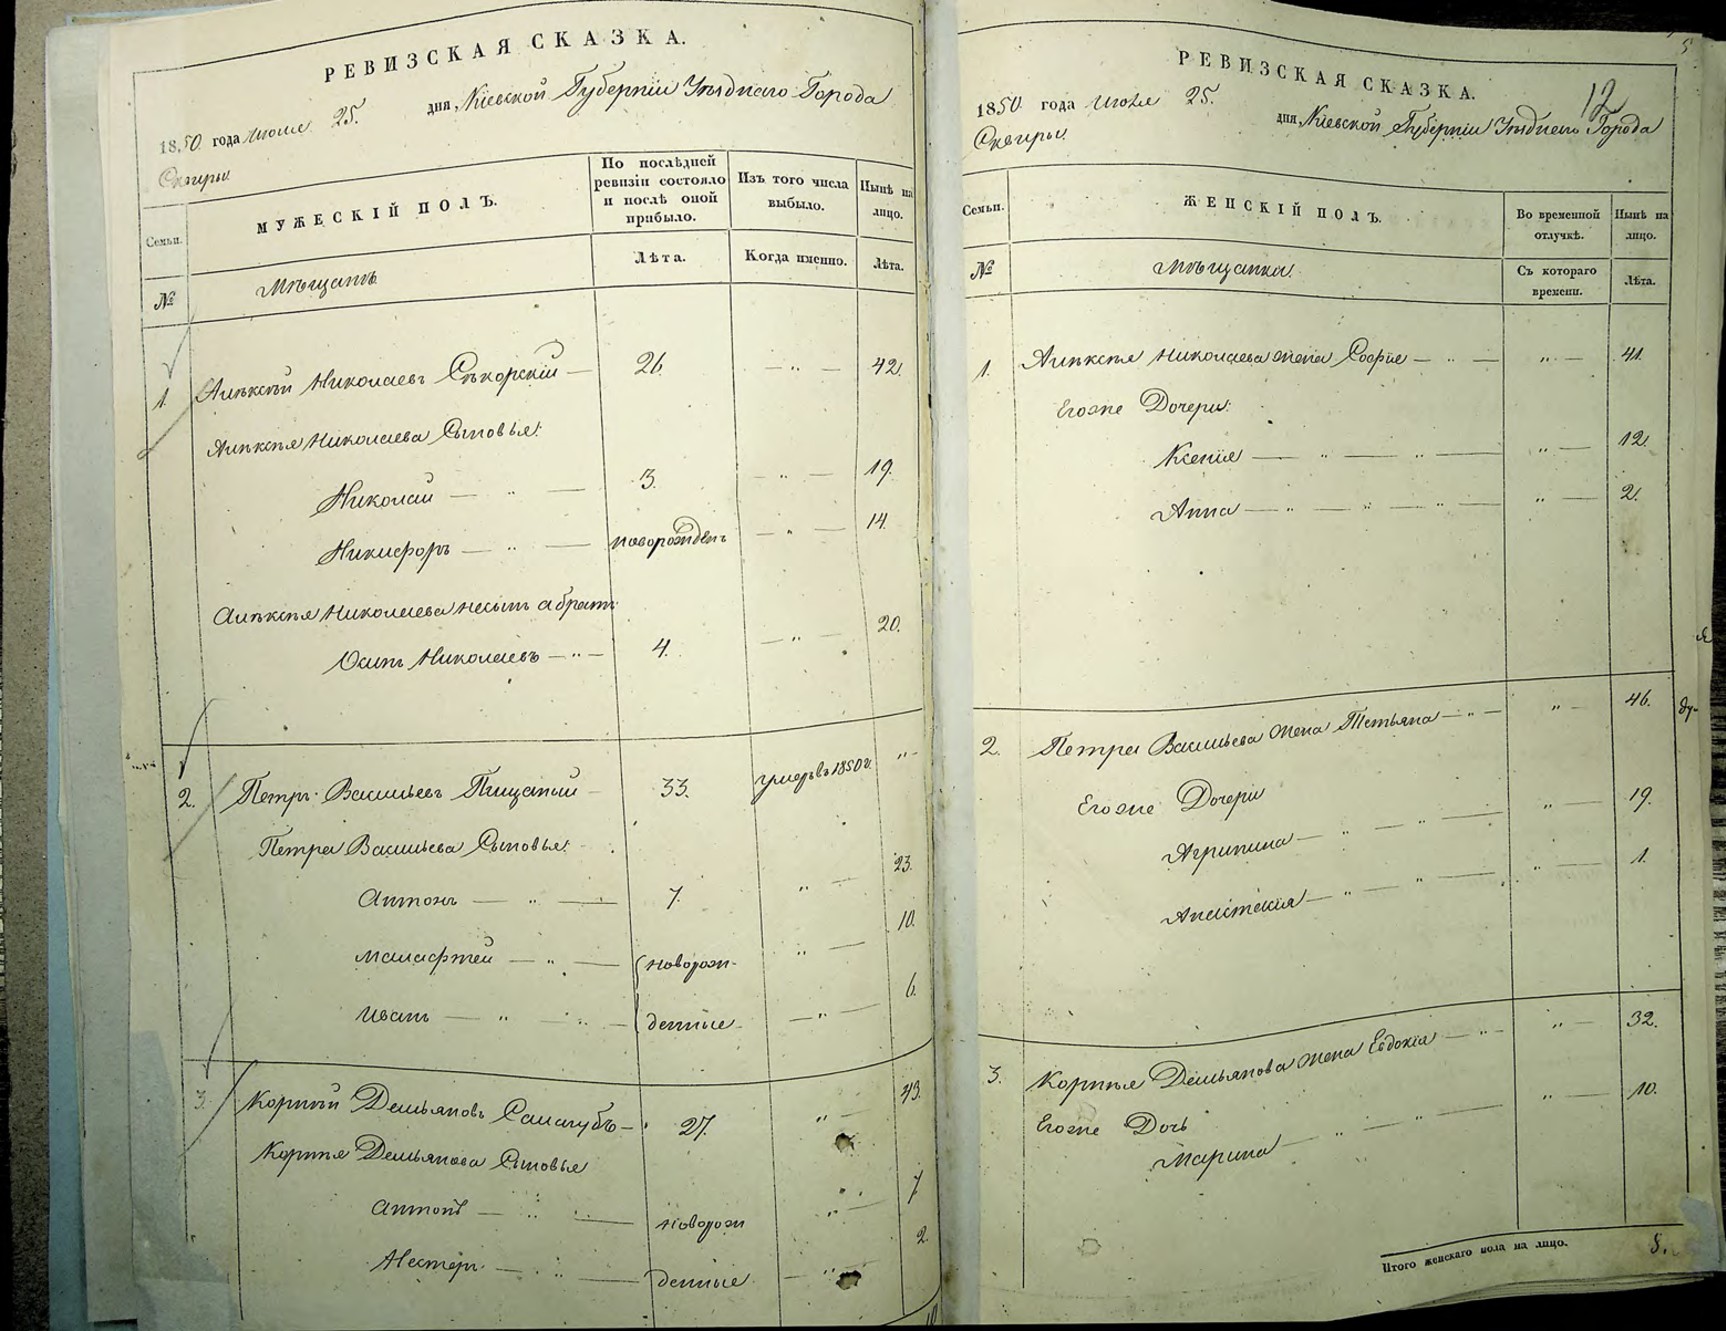 РЕВИЗСКАЯ СКАЗКА.
1850 года июля 25. дня, Кіевской Губерніи Уѣзднаго Города
Сквиры
Семьи.
МУЖЕСКІЙ ПОЛЪ.
По послѣдней ревизіи состояло и послѣ оной прибыло.
Изъ того числа выбыло.
Нынѣ на лицо.
№
Мѣщанъ
Лѣта.
Когда именно.
Лѣта.
1. Алѣксѣй Николаевъ Сѣкорскій — 26. — " — 42.
Алѣксѣя Николаева Сыновья:
Николай — " — 3. — " — 19.
Никифоръ — " — новорожденъ — " — 14.
Алѣксѣя Николаева несынъ а братъ
Осипъ Николаевъ — " — 4. — " — 20.
2. Петръ Васильевъ Пищаный — 33. умеръ въ 1850 г. " -
Петра Васильева Сыновья:
Антонъ — " — 7. " — 23.
Малафтей — " — новорож- " — 10.
Иванъ — " — денные — " — 6.
3. Корнѣй Демьяновъ Самагубъ — 27. " — 43.
Корнѣя Демьянова Сыновья
Антонъ — " — новорож " — 7
Нестеръ — " — денные — " — 2.
РЕВИЗСКАЯ СКАЗКА.
12
1850 года июля 25. дня, Кіевской Губерніи Уѣзднаго Города
Сквиры
Семьи.
ЖЕНСКІЙ ПОЛЪ.
Во временной отлучкѣ.
Нынѣ на лицо.
№
Мѣщанки.
Съ котораго времени.
Лѣта.
1. Алѣксѣя Николаева жена Софія — " — " — 41.
Егоже Дочери:
Ксенія — " — " — " — 12.
Анна — " — " — " — " — 2.
2. Петра Васильева жена Тетьяна — " — " — 46.
Егоже Дочери
Агрипина — " — " — " — 19.
Анастасія — " — " — " — 1.
3. Корнѣя Демьянова жена Евдокія — " — " — 32.
Егоже Дочь
Марина — " — " — " — 10.
Итого женскаго пола на лицо. 8.